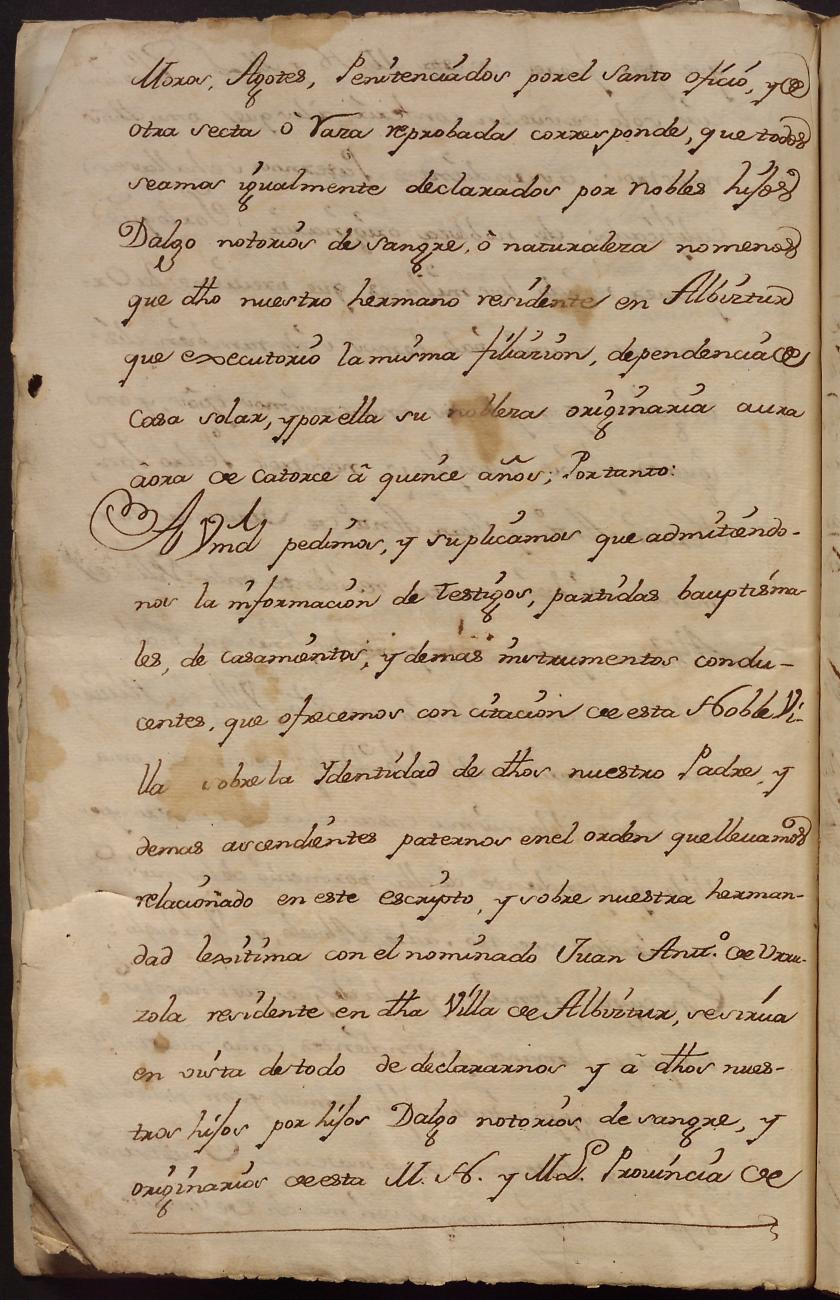 Moros, Agotes, Penitenciados por el Santo oficio, y de
otra secta ò raza reprobada corresponde, que todos
seamos igualmente declarados por nobles hijos
Dalgo notorios de sangre, ò naturaleza no menos
que dho nuestro hermano residente en Albiztur
que executorio la misma filiazion, dependencia de
Casa solar, y por ella su nobleza originaria aura
âora de Catorce â quince años; Por tanto:
A Vmd pedimos, y suplicamos que admitiendo-
nos la informacion de Testigos, partidas bauptisma-
les, de casamientos, y demas instrumentos condu-
centes, que ofrecemos con citacion de esta Noble Vi-
lla sobre la Ydentidad de dhos nuestro Padre, y
demas ascendientes paternos en el orden que lleuamos
relacionado en este escripto, y sobre nuestra herman-
dad lexitima con el nominado Juan Antt.º de Vrru-
zola residente en dha Villa de Albiztur, se sirua
en vista de todo de declararnos y â dhos nues-
tros hijos por hijos Dalgo notorios de sangre, y
originarios de esta M. N. y M. L. Prouincia de